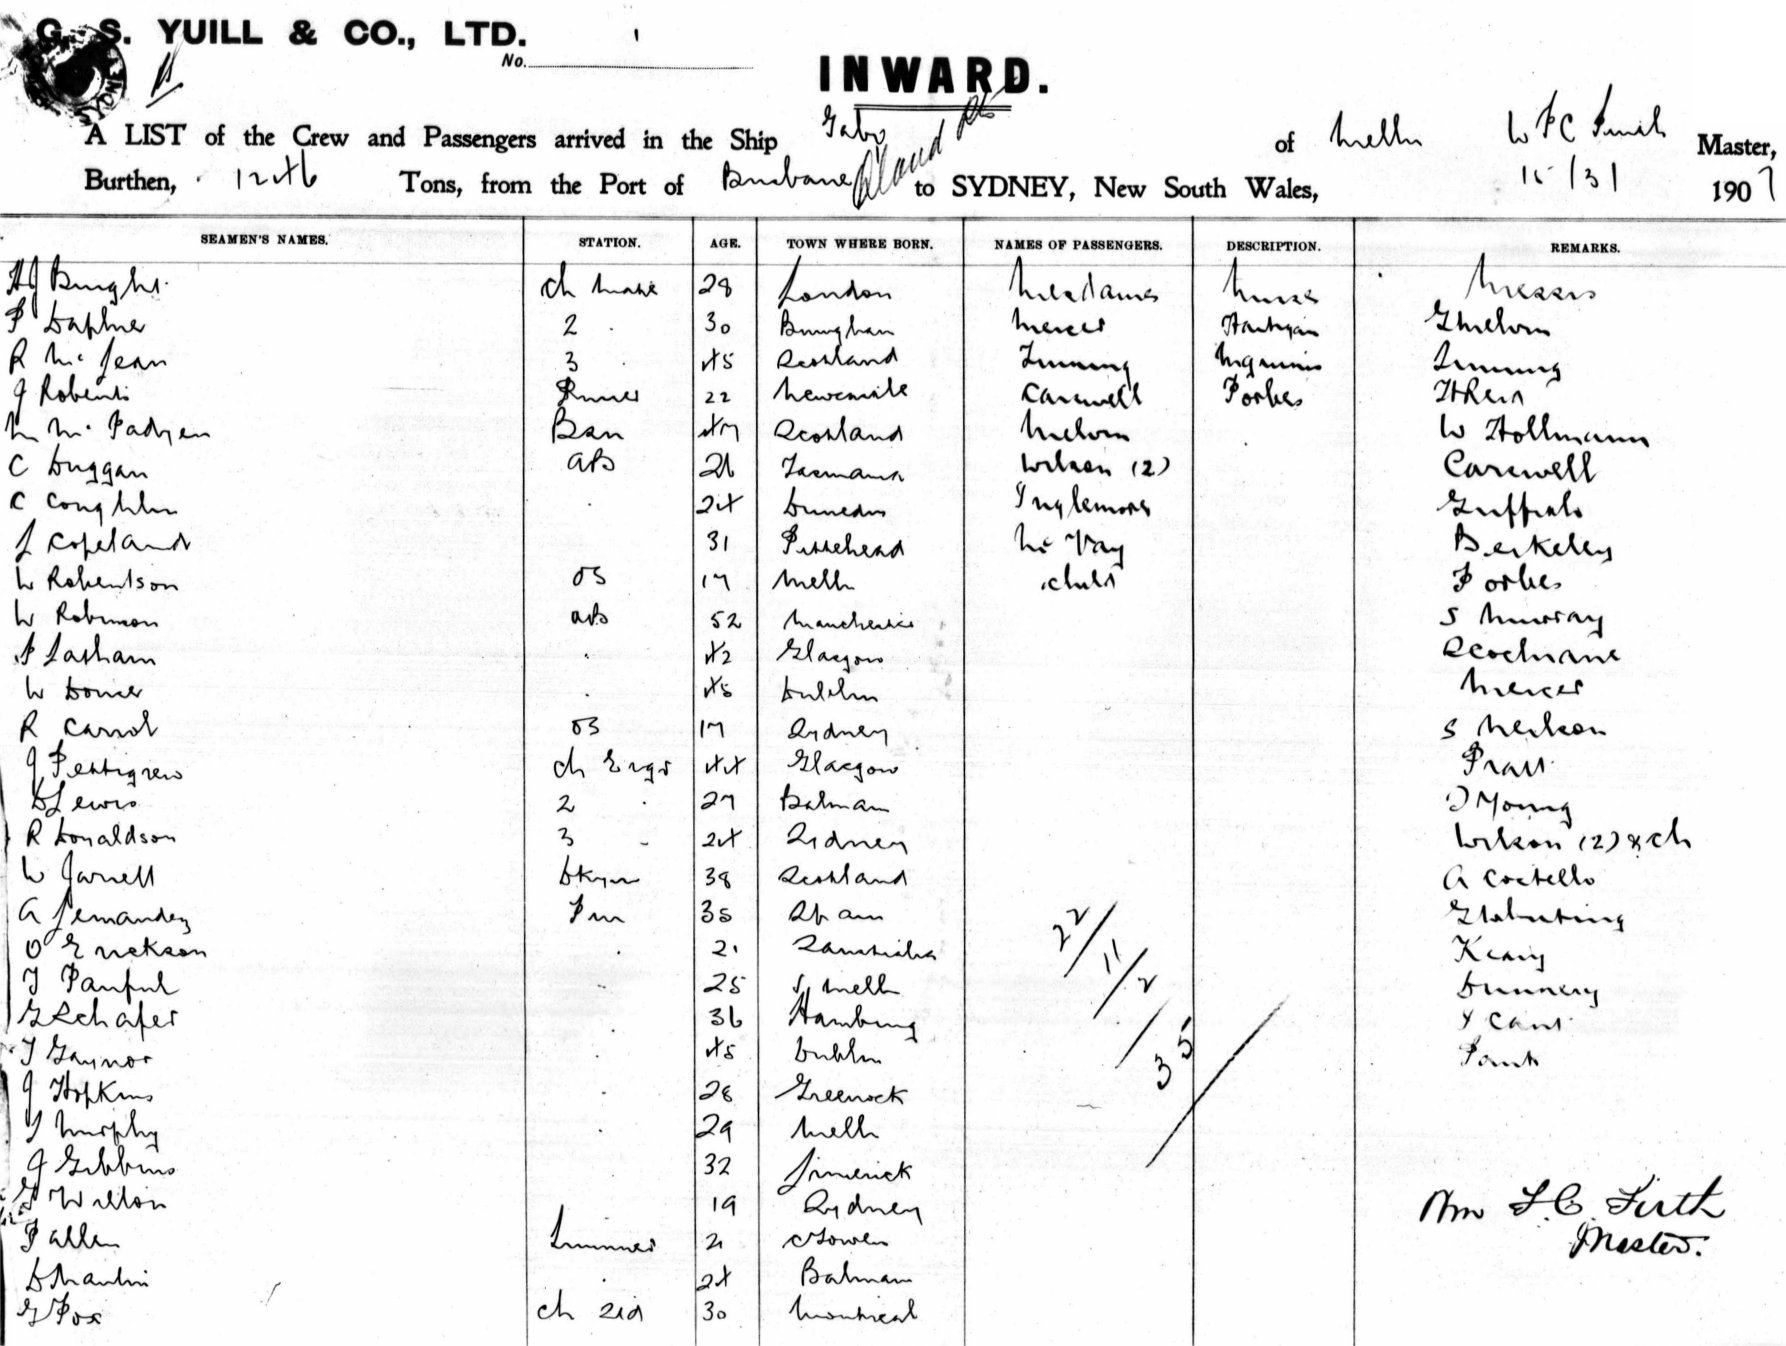 G. S. YUILL & CO., LTD.
No.
INWARD.
A LIST of the Crew and Passengers arrived in the Ship Gabo of Melb Master,
Burthen, 1246 Tons, from the Port of Brisbane to SYDNEY, New South Wales, 15/3/ 1907
SEAMEN'S NAMES. STATION. AGE. TOWN WHERE BORN. NAMES OF PASSENGERS. DESCRIPTION. REMARKS.
ch mate 28 London Mesdames Nurse Messrs
2 . 30 Mercer Hartigan G Melvin
R Mc Lean 3 . 45 Scotland
J Roberts 22 Newcastle Carswell Forbes
M Mc Fadyen 47 Scotland Melvin W Hollmann
C Duggan AB 26 Tasmania Wilson (2) Carswell
C Coughlin . 24 Dunedin
J Copeland 31 Peterhead Mc Vay Berkeley
W Robertson OS 17 Melb child Forbes
W Robinson AB 52 Manchester S Murray
P Latham . 42 Glasgow S Cochrane
W . 45 Dublin Mercer
R Carrol OS 17 Sydney S Neilson
J Pettigrew ch Engr 44 Glasgow Pratt
D Lewis 2 . 27 Balmain J Young
R Donaldson 3 . 24 Sydney Wilson (2) & ch
W Jarvell Dkyn 38 Scotland A Costello
A Fernandez Fm 35 Spain
O Erickson . 21 Keary
T 25 Melb
G Schafer . 36 Hamburg Y Cant
T Gaynor . 45 Dublin
J Hopkins . 28 Greenock
T Murphy . 29 Melb
J Gibbins 32 Limerick
Wilton 19 Sydney
P Allen Trimmer 21
D Martin . 24 Balmain
G Fox ch Std 30 Montreal
22/11/2/35
Master.